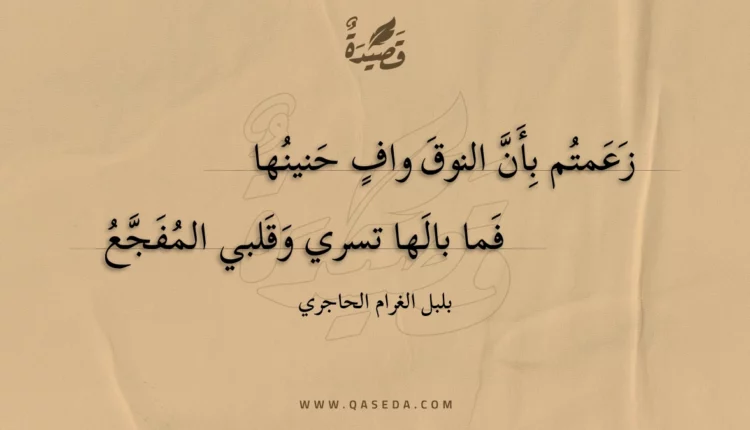 قَصِيدَةٌ
زَعَمتُم بِأَنَّ النوقَ وافٍ حَنينُها
فَما بالَها تسري وَقَلبي المُفَجَّعُ
بلبل الغرام الحاجري
WWW.QASEDA.COM